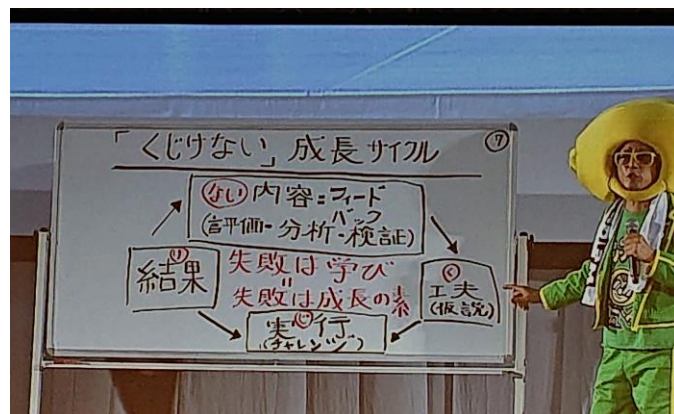 「くじけない」成長サイクル ⑦
ない 内容：フィードバック
(評価-分析-検証)
り
結果
失敗は学び
〃
失敗は成長の素
く
工夫
(仮説)
実じ行
(チャレンジ)